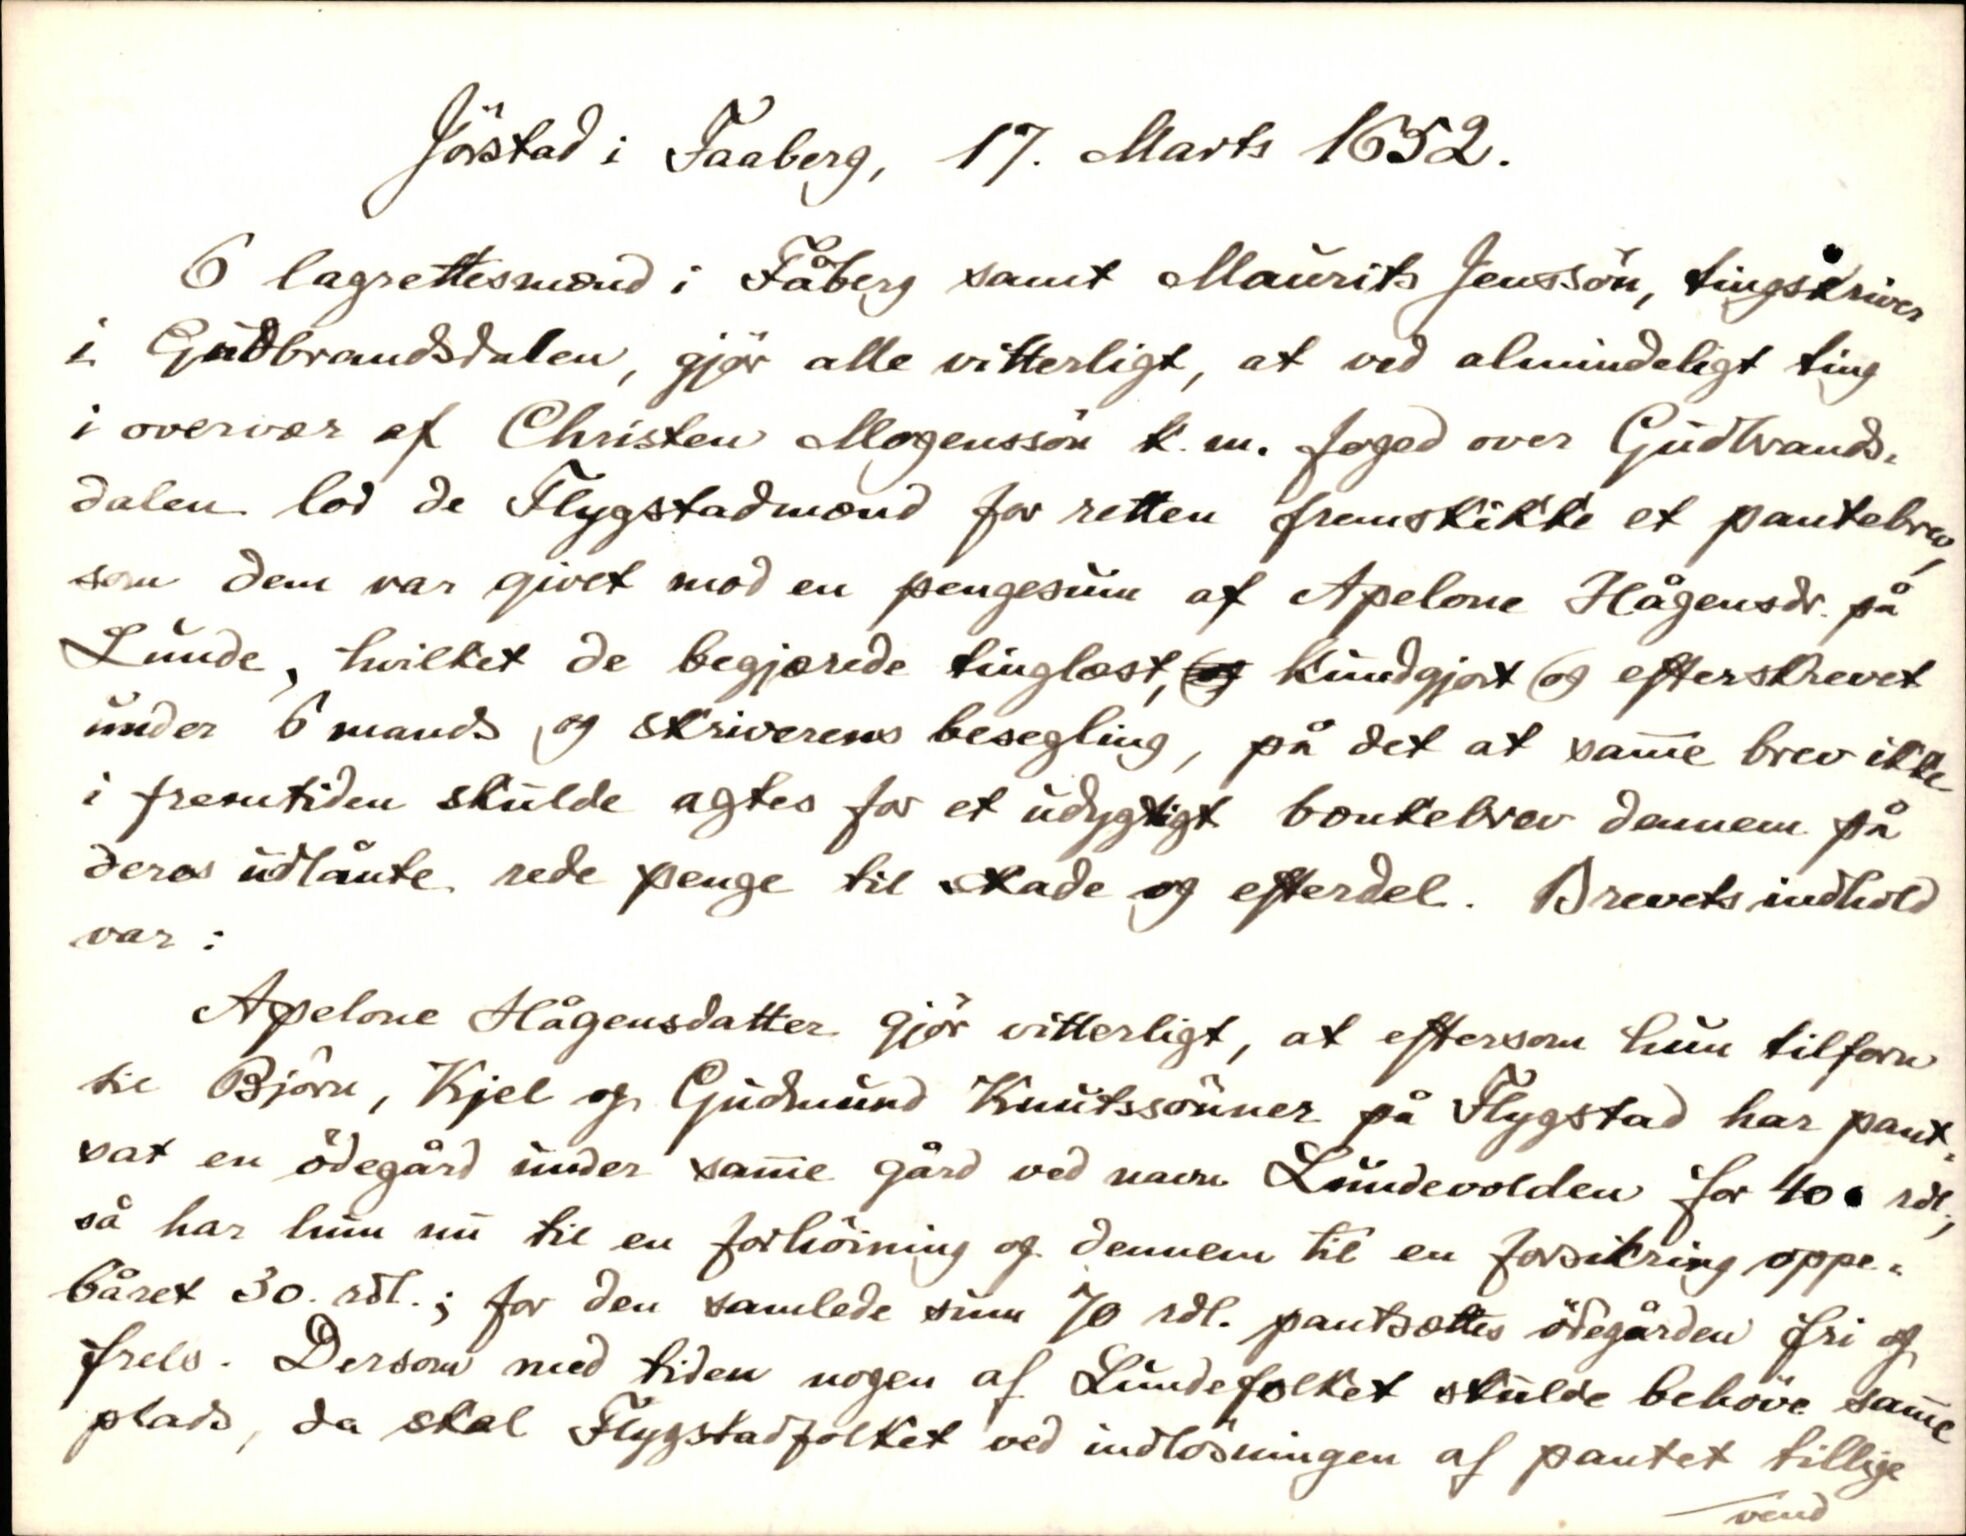 Jörstad i Faaberg, 17. Marts 1652.
6 lagrettesmænd i Fåberg samt Maurits Jenssön, tingskriver
i Gudbrandsdalen, gjör alle vitterligt, at ved almindeligt ting
i overvær af Christen Mogenssön k. m. foged over Gudbrands-
dalen lod de Flygstadmænd for retten fremskikke et pantebrev,
som dem var givet mod en pengesum af Apelone Hågensdr. på
Lunde, hvilket de begjærede tinglæst, kundgjort og efterskrevet
under 6 mands og skriverens besegling, på det at sam̄e brev ikke
i fremtiden skulde agtes for et udygtigt bænkebrev dennem på
deres udlånte rede penge til skade og efterdel. Brevets indhold
var:
Apelone Hågensdatter gjör vitterligt, at eftersom hun tilforn
til Björn, Kjel og Gudmund Knutssönner på Flygstad har pant-
sat en ödegård under sam̄e gård ved navn Lundevolden for 40 rdl.,
så har hun nu til en forhöining og dennem til en forsikring oppe-
båret 30. rdl.; for den samlede sum 70 rdl. pantsættes ödegården fri og
frels. Dersom med tiden nogen af Lundefolket skulde behöve sam̄e
plads, da skal Flygstadfolket ved indlösningen af pantet tillige
vend